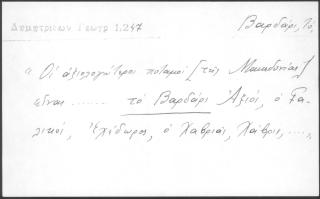 Δημητριέων Γεωγρ 1.247
Βαρδάρι, τό,
" Οἱ ἀξιολογώτεροι ποταμοί [τῆς Μακεδονίας]
εἶναι ........ τὸ Βαρδάρι Ἀξιός, ὁ Γα-
λικός, Ἐχέδωρος, ὁ Χαβριάς, Χάβρις, ....,